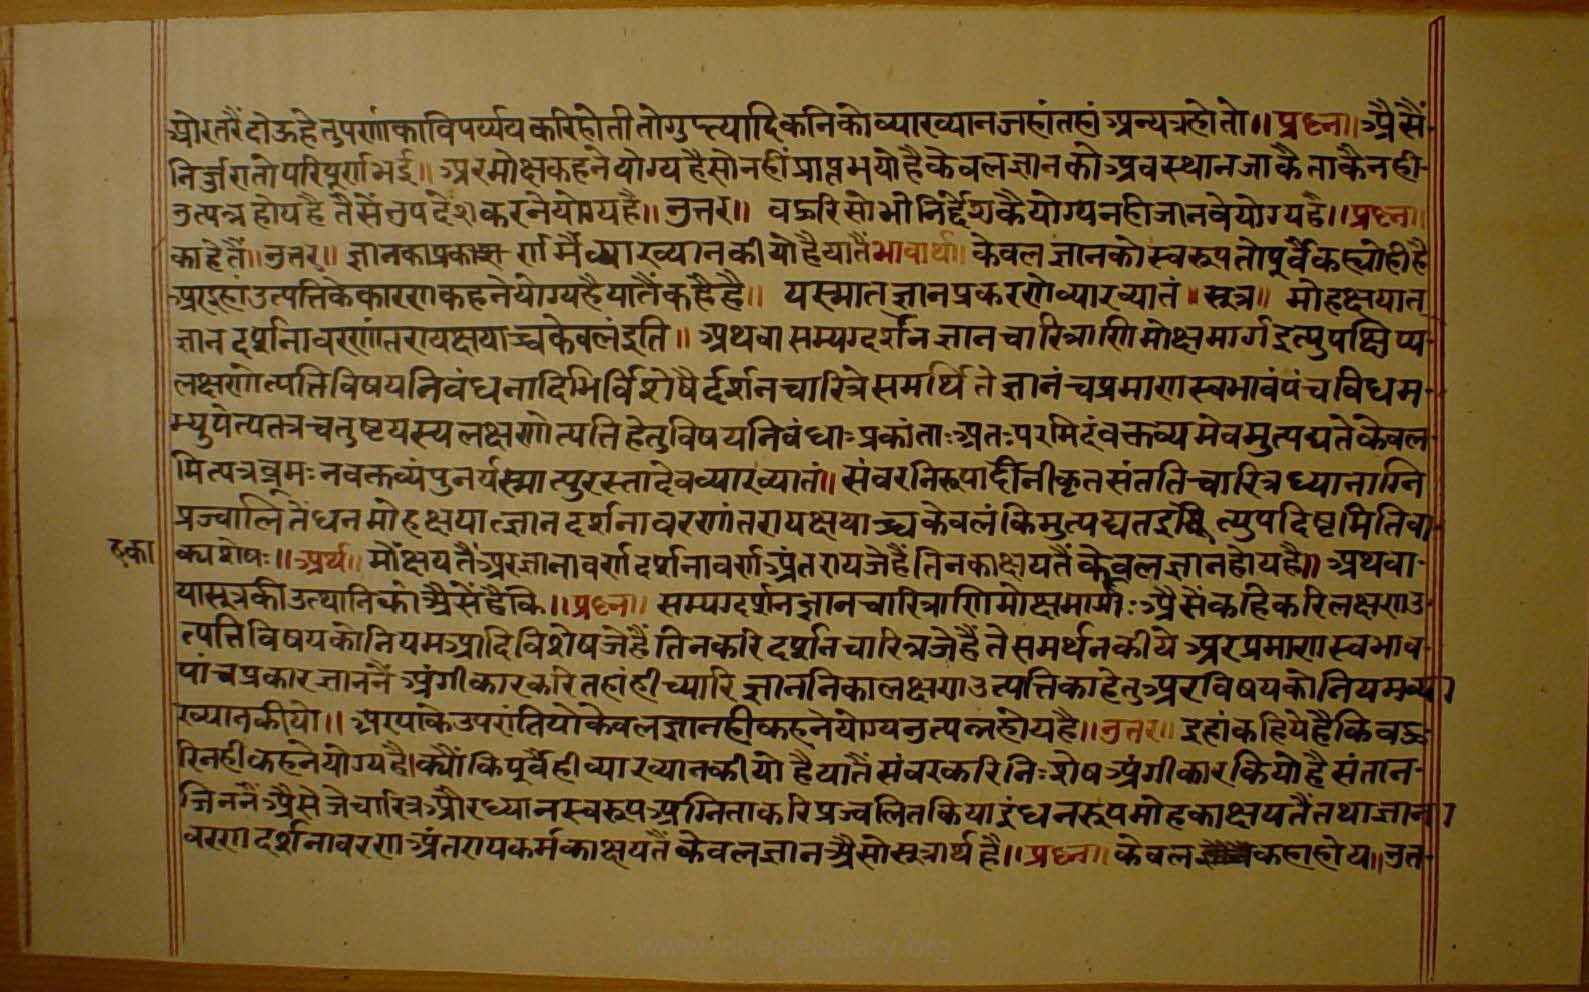 ओरतरैंदोऊहेतुपणांकाविपर्य्ययकरिहोतीतोगुप्त्यादिकनिकोव्याख्यानजहांतहांअन्यत्रहोतो॥प्रश्न॥अैसैं-
निर्ज्जरातोपरिपूर्णभई॥अरमोक्षकहनेयोग्यहैसोनहींप्राप्तभयोहैकेवलज्ञानकोअवस्थानजाकैताकैनही-
उत्पन्नहोयहैतैसेंउपदेशकरनेयोग्यहै॥उत्तर॥ वऊरिसोभीनिर्द्देशकैयोग्यनहीजानवेयोग्यहै॥प्रश्न॥
काहेतैं॥उत्तर॥ ज्ञानकाप्रकारणमैंव्याख्यानकीयोहैयातैंभावार्थ॥केवलज्ञानकोस्वरूपतोपूर्वैकह्योहीहै
अरइहांउत्पत्तिकेकारणकहनेयोग्यहैयातैंकहैहै॥ यस्मातज्ञानप्रकरणेव्याख्यातं॥सूत्र॥ मोहक्षयात्
ज्ञानदर्शनावरणांतरायक्षयाच्चकेवलंइति॥अथवासम्यग्दर्शनज्ञानचारित्राणिमोक्षमार्गइत्युपक्षिप्य-
लक्षणोत्पत्तिविषयनिबंधनादिभिर्विशेषैर्दर्शनचारित्रेसमर्थितेज्ञानंचप्रमाणस्वभावंपंचविधम-
भ्युपेत्यतत्रचतुष्टयस्यलक्षणोत्पत्तिहेतुविषयनिबंधाःप्रकांताःअतःपरमिदंवक्तव्यमेवमुत्पद्यतेकेवल-
मित्यत्रब्रूमःनवक्तव्यंपुनर्यस्मात्पुरस्तादेवव्याख्यातं॥संवरनिरूपादीनीकृतसंततिचारित्रध्यानाग्नि
प्रज्वालितेंधनमोहक्षयात्ज्ञानदर्शनावरणांतरायक्षयाच्चकेवलंकिमुत्पद्यतइत्युपदिष्टमितिवा-
क्यशेषः॥अर्थ॥मोक्षयतैंअरज्ञानावर्णदर्शनावर्णअंतरायजेहैंतिनकाक्षयतैंकेवलज्ञानहोयहै॥अथवा-
हका
यासूत्रकीउत्थानिकोअैसेंहैकि॥प्रश्न॥ सम्यग्दर्शनज्ञानचारित्राणिमोक्षमार्गः अैसेंकहिकरिलक्षणउ-
त्पत्तिविषयकोनियमआदिविशेषजेहैंतिनकरिदर्शनचारित्रजेहैंतेसमर्थनकीयेअरप्रमाणस्वभाव-
पांचप्रकारज्ञाननैंअंगीकारकरितहांहीच्यारिज्ञाननिकालक्षणउत्पत्तिकाहेतुअरविषयकोनियमव्या
ख्यानकीयो॥अरयाकेउपरांतियोकेवलज्ञानहीकहनेयोग्यउत्पन्नहोयहै॥उत्तर॥इहांकहियेहैकिवऊ-
रिनहीकहनेयोग्यहै।क्यौंकिपूर्वैहीव्याख्यानकीयोहैयातैंसंवरकरिनिःशेषअंगीकारकियोहैसंतान-
जिननैंअैसेजेचारित्रऔरध्यानस्वरूपअग्निताकरिप्रज्वलितकियाइंधनरूपमोहकाक्षयतैंतथाज्ञाना
वरणदर्शनावरणअंतरायकर्मकाक्षयतैंकेवलज्ञानअैसोसूत्रार्थहै॥प्रश्न॥केवलकहाहोय॥उत-